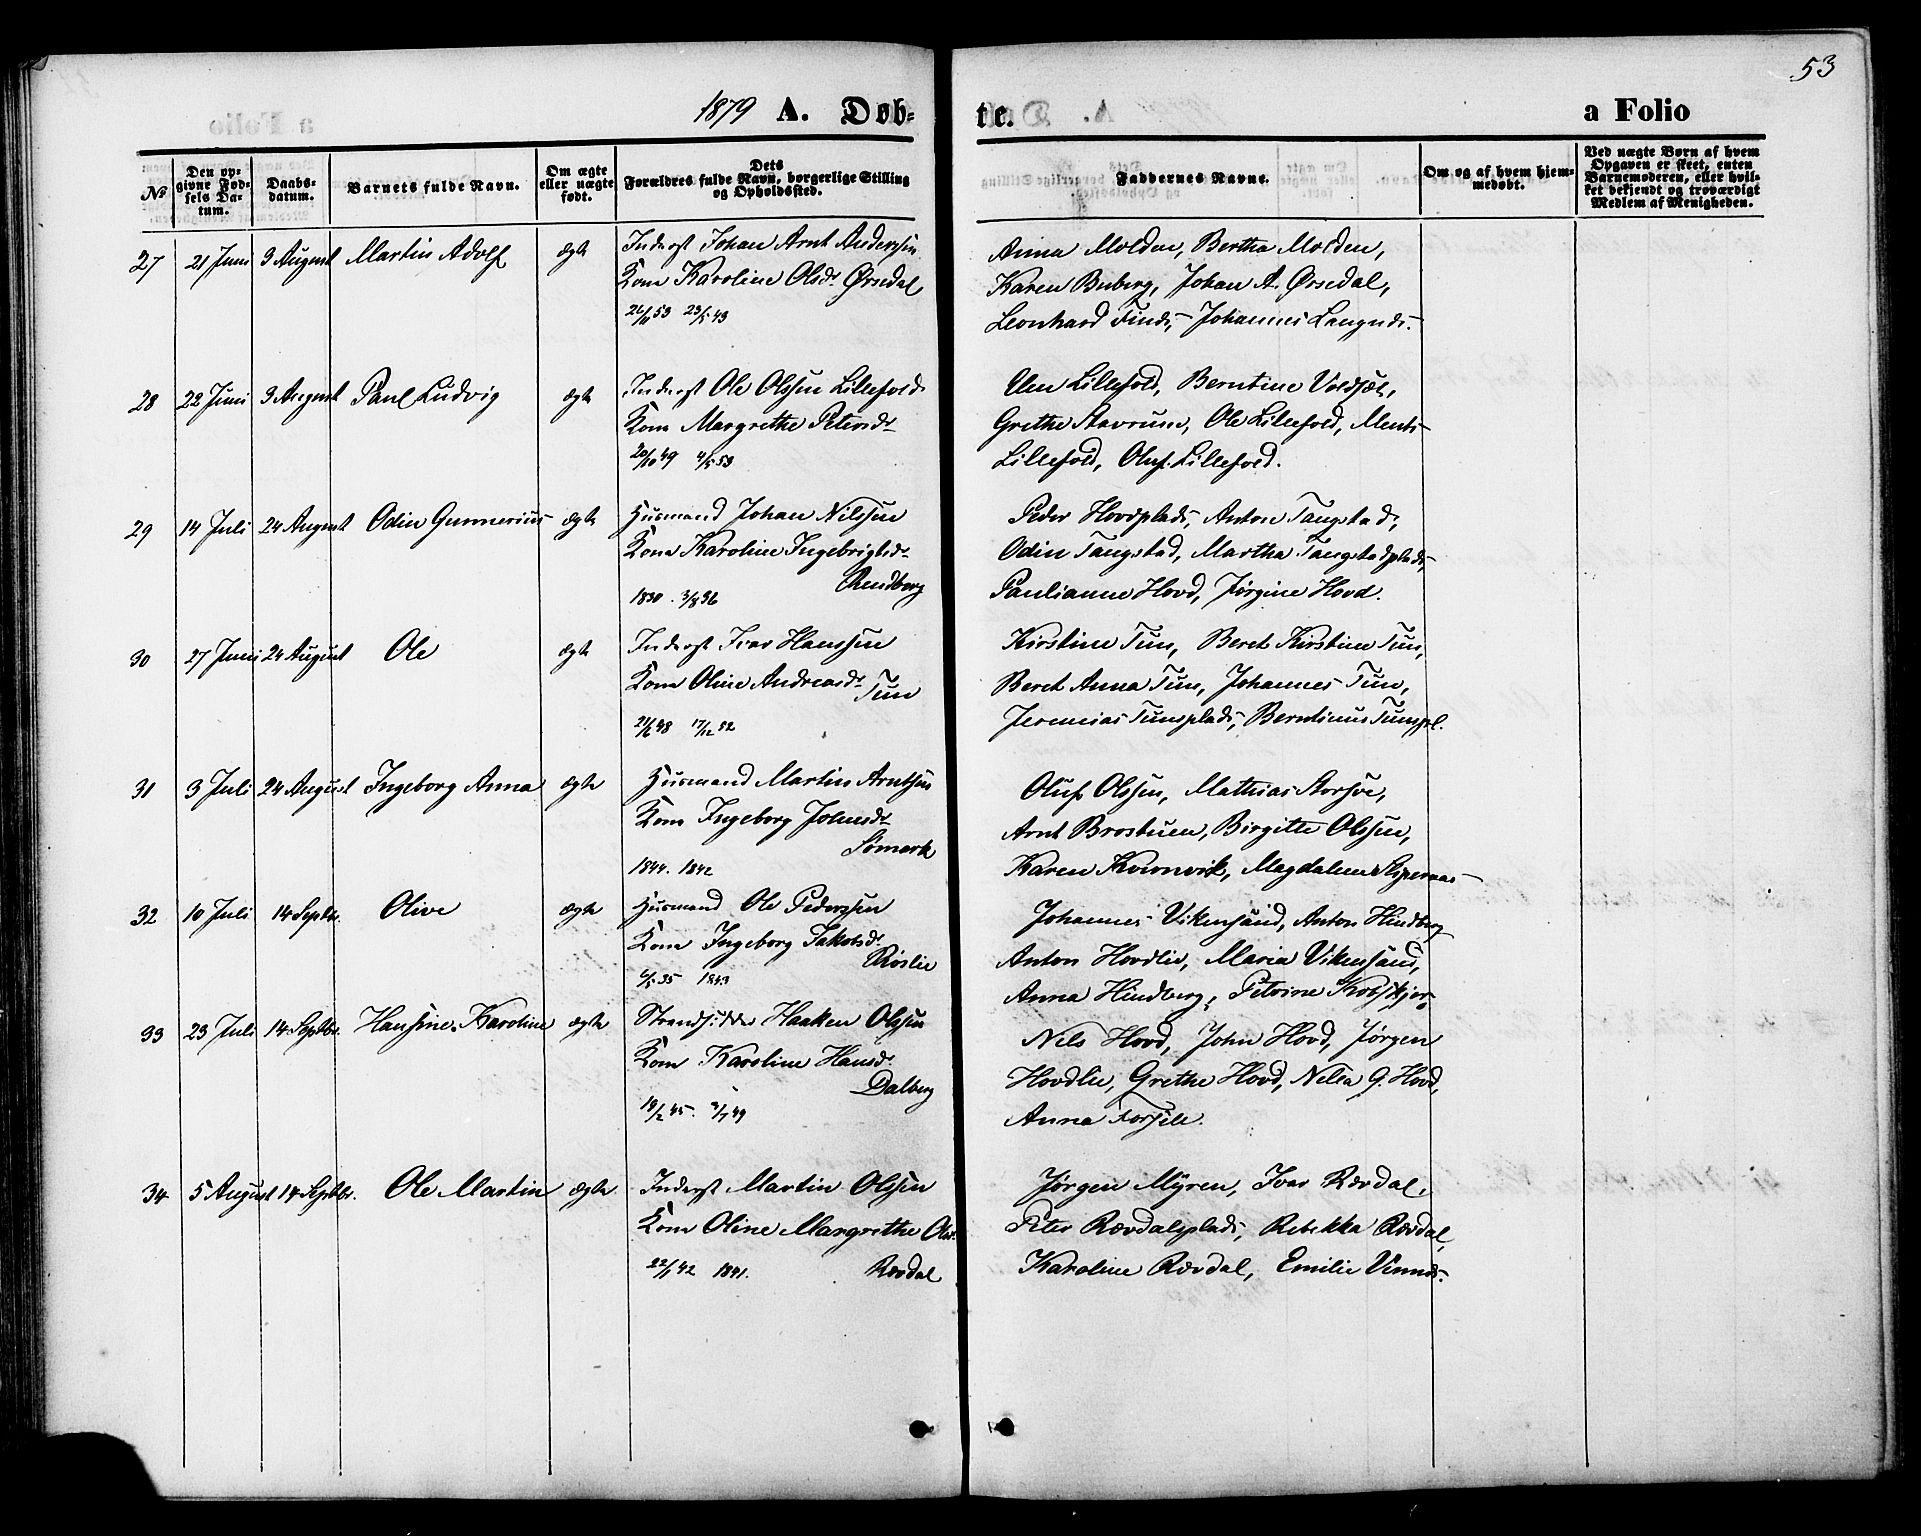 53
1879 A. Døb-
te.
a Folio
No
Den op-
givne Fød-
sels Da-
tum.
Daabs-
datum.
Barnets fulde Navn.
Om ægte
eller uægte
født.
Dets
Forældres fulde Navn, borgerlige Stilling
og Opholdssted.
Faddernes Navne.
Om og af hvem hjem-
medøbt.
Ved uægte Børn af hvem
Opgaven er skeet, enten
Barnemoderen, eller hvil-
ket bekjendt og troværdigt
Medlem af Menigheden.
27 21 Juni 3 August Martin Adolf ægte Inderst Johan Arnt Anderssen
Kone Karoline Olsd. Ørsedal
26/11 53 23/5 43
Anna Molden, Bertha Molden,
Karen Buberg, Johan A. Ørsedal,
Leonhard Finds, Johannes Langnds.
28 22 Juni 3 August Paul Ludvig ægte Inderst Ole Olssen Lillefold
Kone Margrethe Petersd.
20/10 49 4/5 53
Elen Lillefold, Berntine Voldsæt,
Grethe Stavrum, Ole Lillefold, Ments
Lillefold, Oluf Lillefold.
29 14 Juli 24 August Odin Gunnerius ægte Husmand Johan Nilssen
Kone Karoline Ingebrigtsd.
Rendberg
1830. 3/8 36
Peder Hovdplads, Anton Tangstad,
Odin Tangstad, Martha Tangstadplads,
Paulianne Hovd, Jørgine Hovd.
30 27 Juni 24 August Ole ægte Inderst Ivar Hanssen
Kone Oline Andreasd. Tun
21/6 48 17/12 52
Kirstine Tun, Beret Kirstine Tun,
Beret Anna Tun, Johannes Tun,
Jeremias Tunsplads, Berntinus Tunspl.
31 3 Juli 24 August Ingeborg Anna ægte Husmand Martin Arntsen
Kone Ingeborg Johnsd.
Sømark
1844. 1842
Oluf Olssen, Mathias Storsve,
Arnt Brostuen, Birgitte Olssen,
Karen Kvernvik, Magdalena
32 10 Juli 14 Septbr. Olive ægte Husmand Ole Pederssen
Kone Ingeborg Jakobsd.
Røslie
6/5 35 1843
Johannes Vikensand, Anton Hindberg
Anton Hovdlie, Maria Vikensand,
Anna Hindberg, Petrine
33 23 Juli 14 Septbr. Hansine Karoline ægte Strandsidder Haaken Olssen
Kone Karoline Hansd.
Dalberg
14/2 45. 2/7 49
Nels Hovd, John Hovd, Jørgen
Hovdlie, Grethe Hovd, Nelea G. Hovd,
Anna Forsete.
34 5 August 14 Septbr. Ole Martin ægte Inderst Martin Olssen
Kone Oline Margrethe Olsd.
22/1 42 1841. Rævdal
Jørgen Myren, Ivar Rævdal,
Peter Rævdalsplads, Rebekka Rævdal,
Karoline Rævdal, Emilie